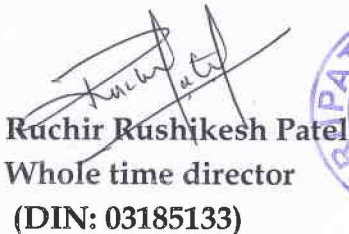 Ruchir Patel
Ruchir Rushikesh Patel
Whole time director
(DIN: 03185133)